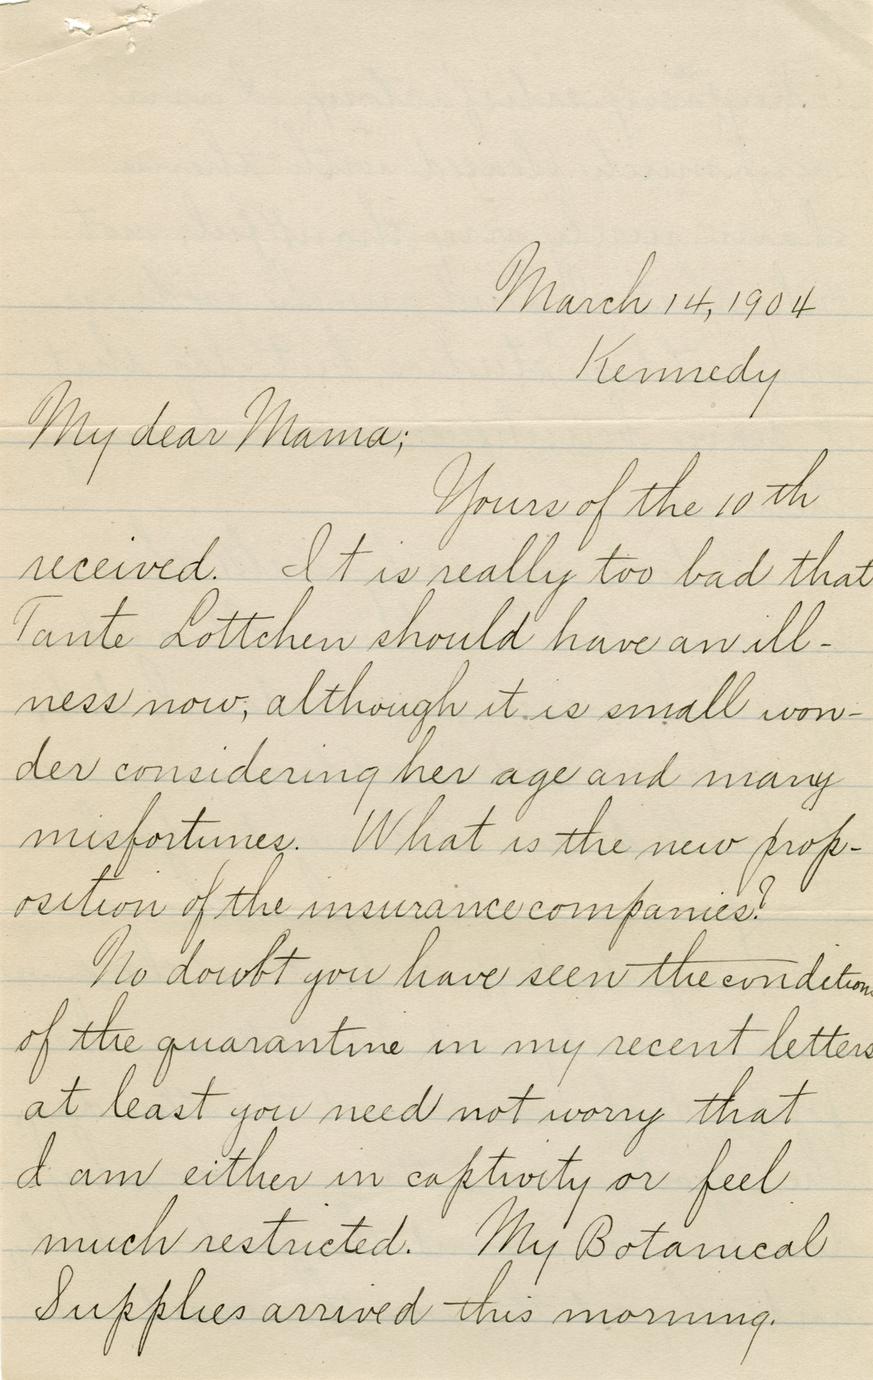 March 14, 1904
Kennedy
My dear Mama;
Yours of the 10th
received. It is really too bad that
Tante Lottchen should have an ill-
ness now, although it is small won-
der considering her age and many
misfortunes. What is the new prop-
osition of the insurance companies?
No doubt you have seen the conditions
of the quarantine in my recent letters
at least you need not worry that
I am either in captivity or feel
much restricted. My Botanical
Supplies arrived this morning.